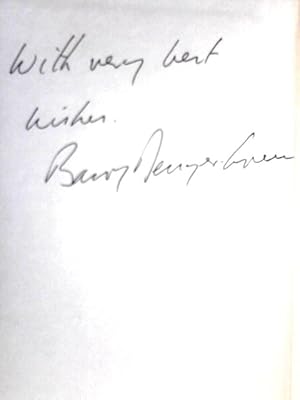 With very best
wishes.
Barry Denyer-Green